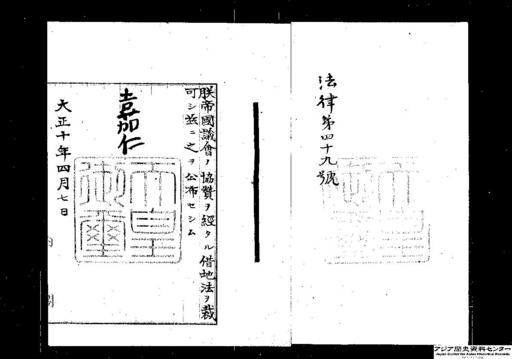 法律第四十九號
朕帝國議會ノ協贊ヲ經タル借地法ヲ裁
可シ茲ニ之ヲ公布セシム
嘉仁
大正十年四月七日
天皇御璽
内閣
アジア歴史資料センター
Japan Center for Asian Historical Records